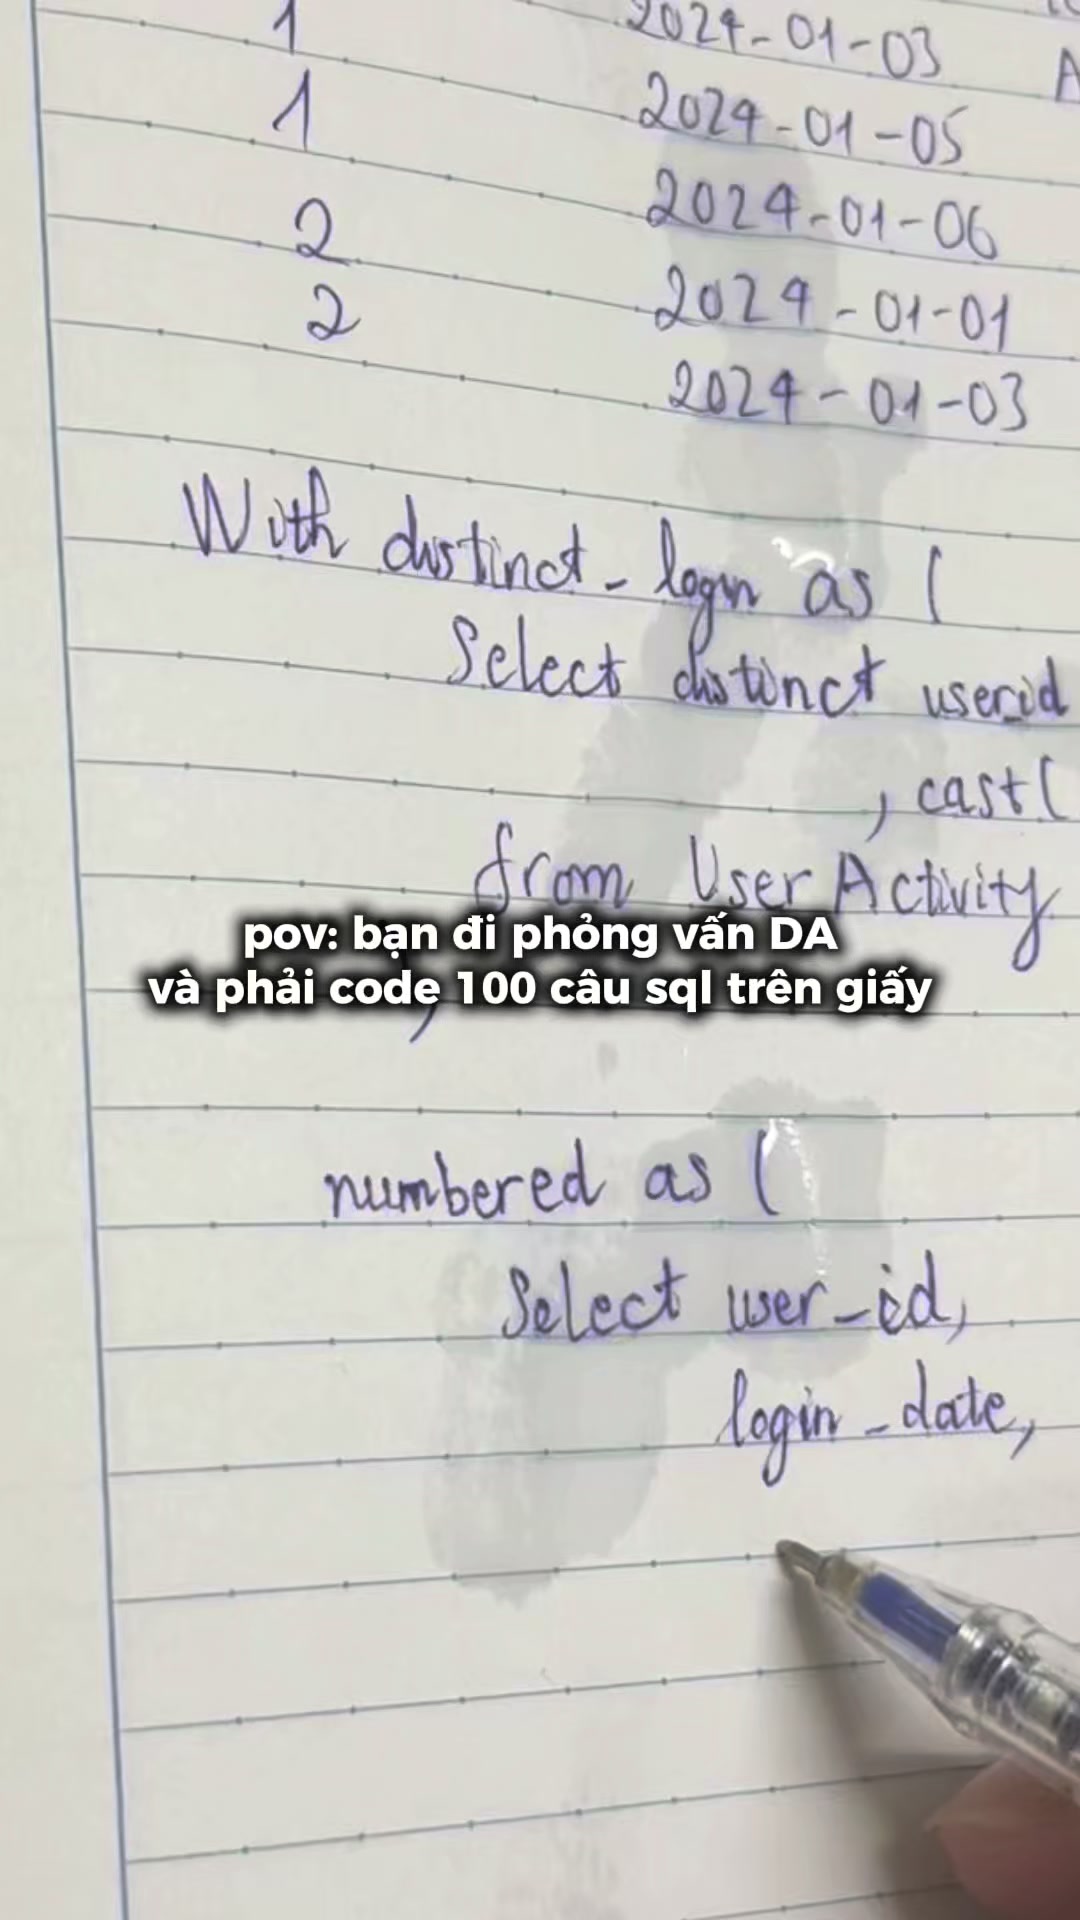 1 2024-01-03
1 2024-01-05
2 2024-01-06
2 2024-01-01
2024-01-03
With distinct_login as (
Select distinct user_id
, cast(
from UserActivity
pov: bạn đi phỏng vấn DA
và phải code 100 câu sql trên giấy
numbered as (
Select user_id,
login_date,